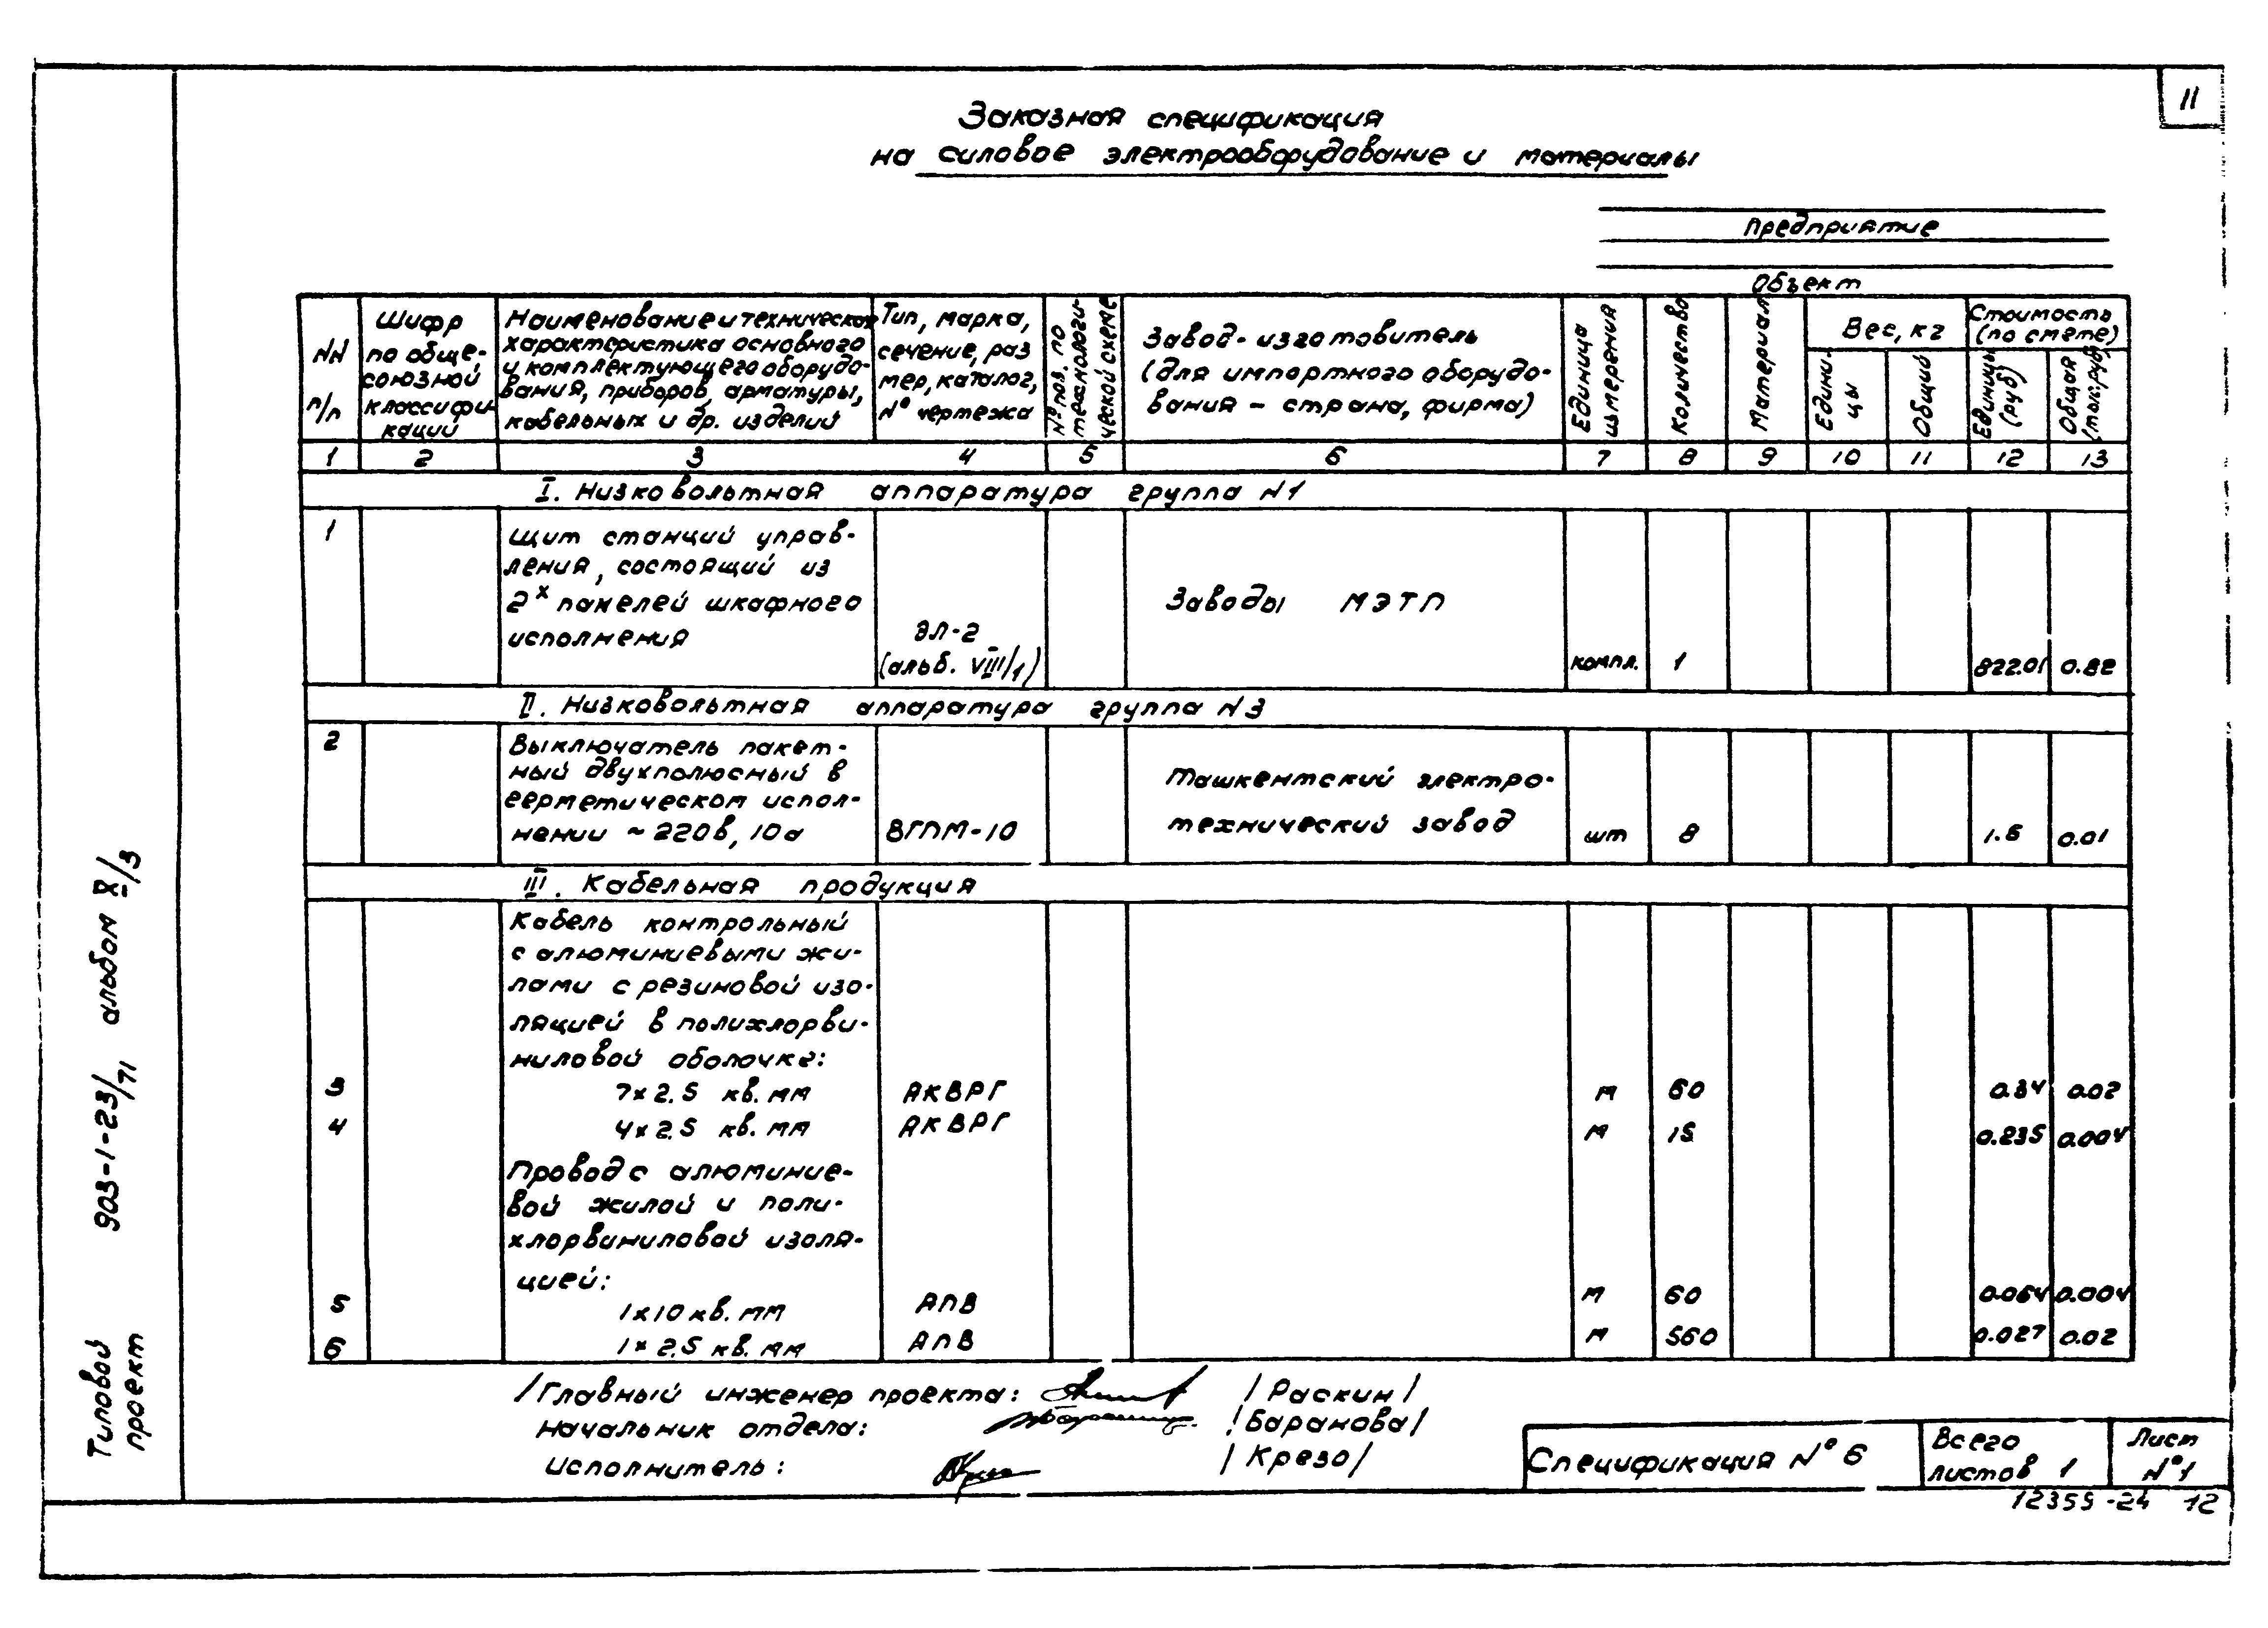 11
Заказная спецификация
на силовое электрооборудование и материалы
Предприятие
Объект
NN п/п
Шифр по обще-союзной классифи-кации
Наименование и техническая
характеристика основного
и комплектующего оборудо-
вания, приборов, арматуры,
кабельных и др. изделий
Тип, марка,
сечение, раз
мер, каталог,
N° чертежа
N° поз. по
технологи-
ческой схеме
Завод-изготовитель
(для импортного оборудо-
вания - страна, фирма)
Единица
измерения
Количество
Материал
Вес, кг
Едини-
цы
Общий
Стоимость
(по смете)
Единицы
(руб)
Общая
(тыс.руб)
1 2 3 4 5 6 7 8 9 10 11 12 13
I. Низковольтная аппаратура группа N1
1
Щит станций управ-
ления, состоящий из
2х панелей шкафного
Заводы МЭТП
исполнения
ЭЛ-2
(альб. VIII/1)
компл. 1 822.01 0.82
II. Низковольтная аппаратура группа N3
2
Выключатель пакет-
ный двухполюсный в
герметическом испол-
нении ~ 220в, 10а ВГПМ-10
Ташкентский электро-
технический завод
шт 8 1.6 0.01
III. Кабельная продукция
Кабель контрольный
с алюминиевыми жи-
лами с резиновой изо-
ляцией в полихлорви-
ниловой оболочке:
3 7×2.5 кв. мм АКВРГ м 60 0.34 0.02
4 4×2.5 кв. мм АКВРГ м 15 0.235 0.004
Провод с алюминие-
вой жилой и поли-
хлорвиниловой изоля-
цией:
5 1×10 кв. мм АПВ м 60 0.064 0.004
6 1×2.5 кв. мм АПВ м 560 0.027 0.02
/Главный инженер проекта: /Раскин/
Начальник отдела: /Баранова/
Исполнитель: /Крезо/
Спецификация N° 6
Всего
листов 1
Лист
N°1
12355-24 12
Типовой
проект
903-1-23/71 альбом X/3